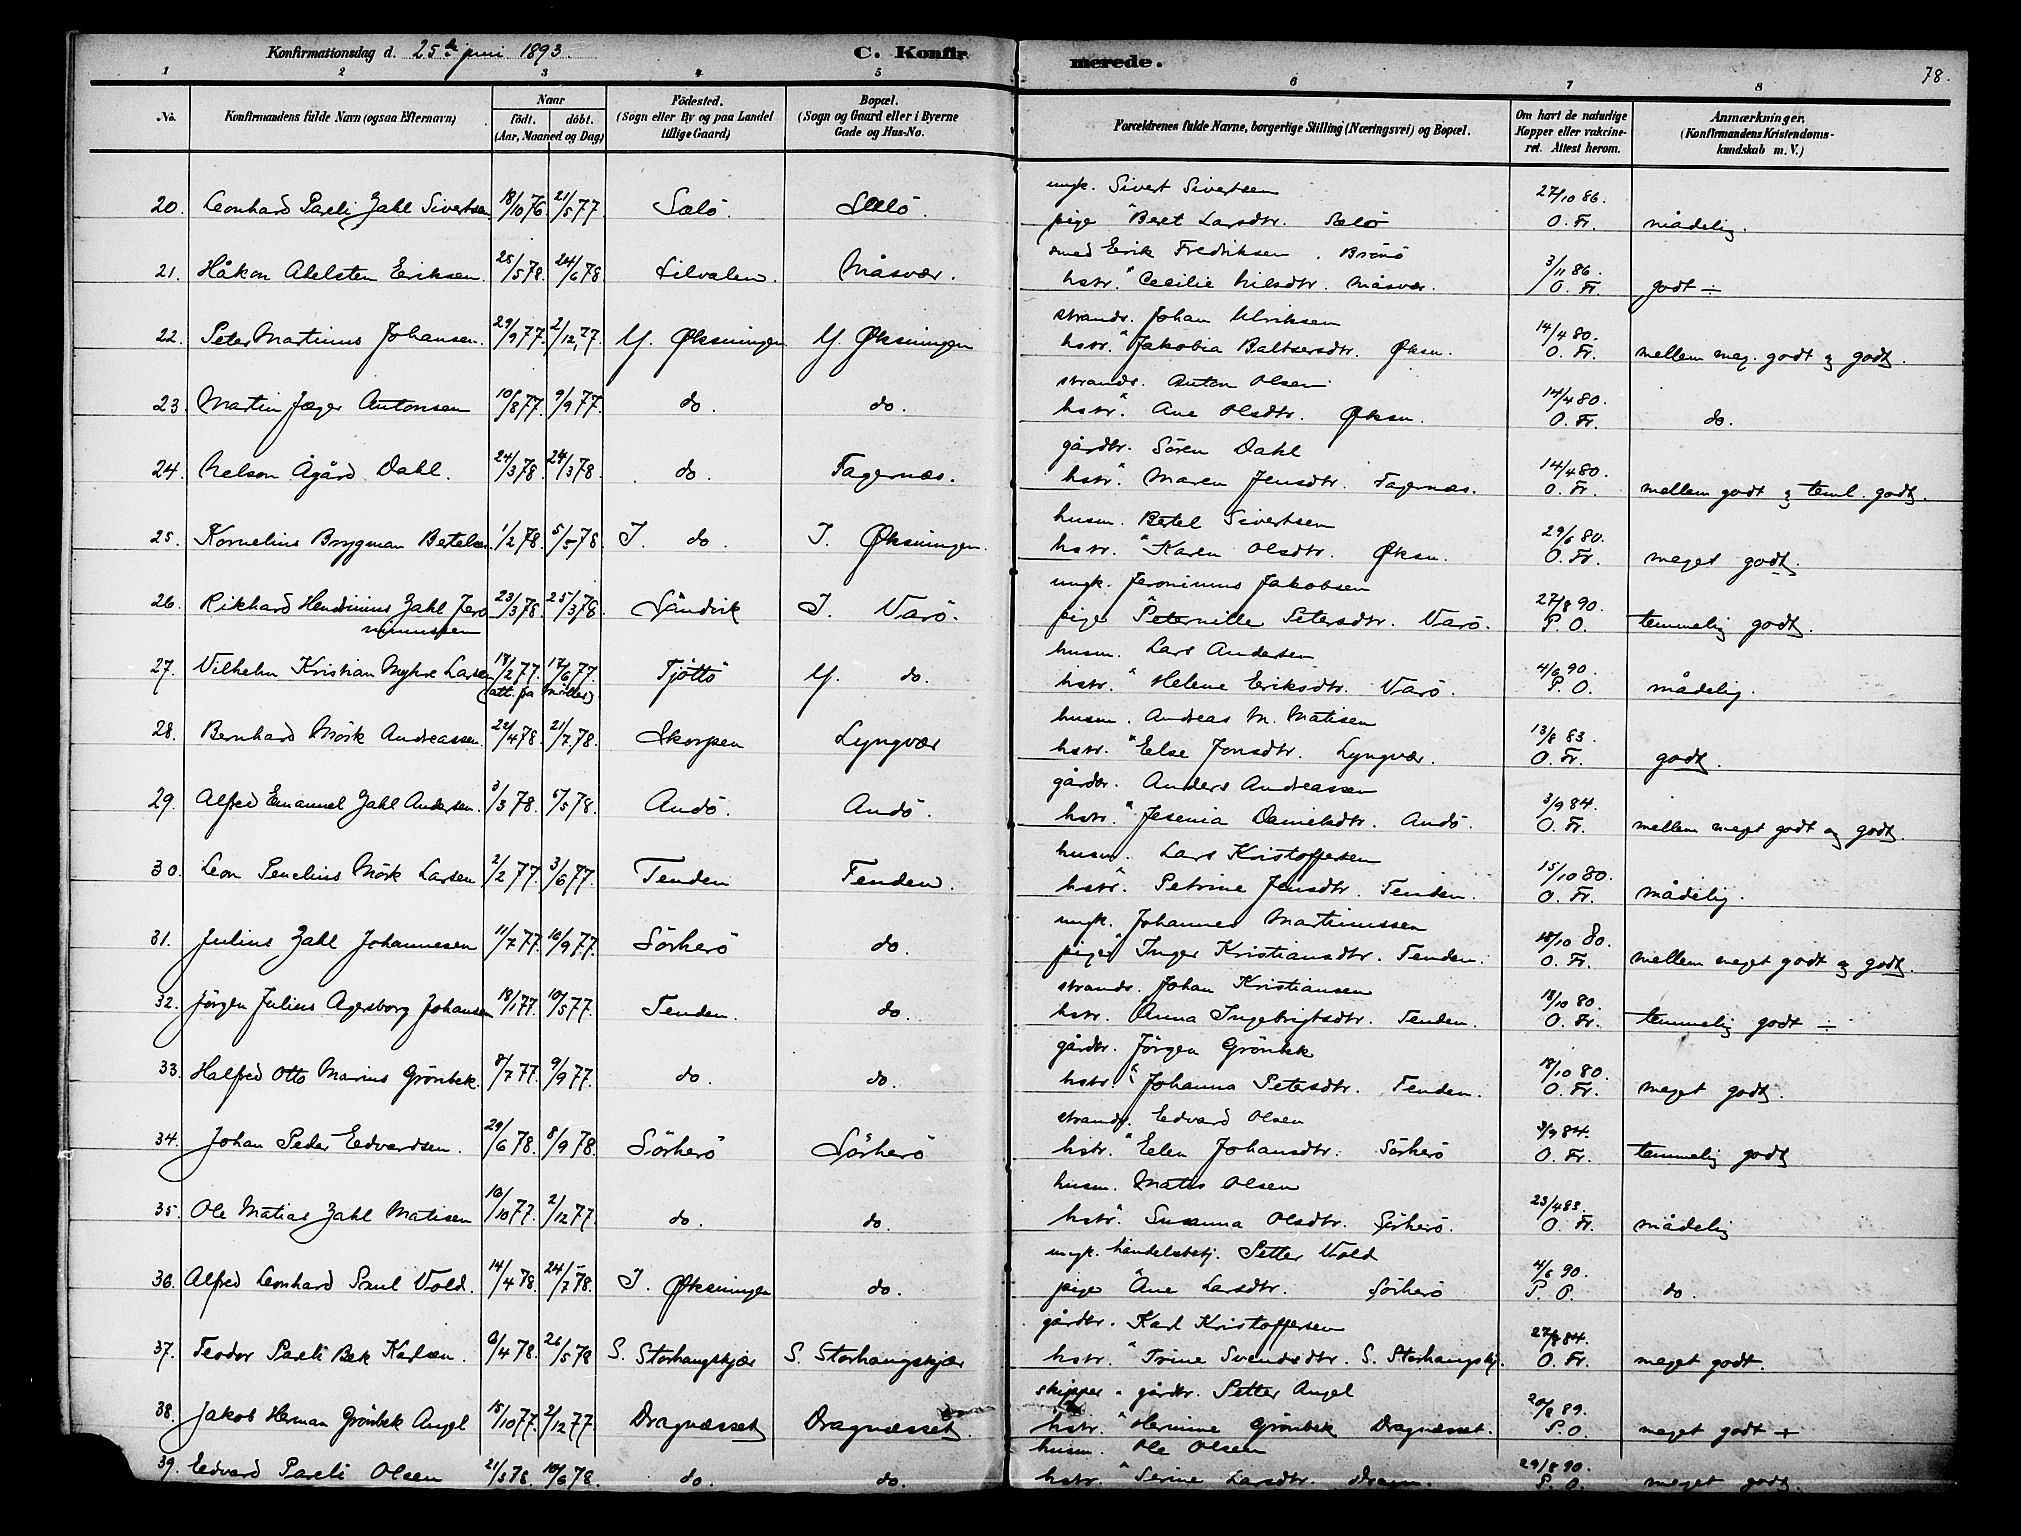 Konfirmationsdag d. 25de juni 1893.
C. Konfirmerede.
78.
1 2 3 4 5 6 7 8
No. Konfirmandens fulde Navn (ogsaa Efternavn) Naar födt. döbt. (Aar, Maaned og Dag) Födested. (Sogn eller By og paa Landet tillige Gaard) Bopæl. (Sogn og Gaard eller i Byerne Gade og Hus-No. Forældrenes fulde Navne, borgerlige Stilling (Næringsvei) og Bopæl. Om havt de naturlige Kopper eller vakcineret. Attest herom. Anmærkninger. (Konfirmandens Kristendomskundskab m. V.)
ungk. Sivert Sivertsen 27/10 86.
20. Leonhard Pareli Zahl Sivertsen 18/10 76. 21/5 77. Sælö. Sælö. pige Beret Larsdtr. Sælö O. Fr. mådelig.
smed Erik Fredriksen . Brönö 3/11 86.
21. Håkon Adelsten Eriksen. 25/5 78. 24/6 78 Lilvalen. Måsvær. hstr. Cecilie Nilsdtr. Måsvær. O. Fr. godt ÷
strands. Johan Ulriksen 14/4 80.
22. Peter Martinus Johansen. 29/9 77. 2/12 77. Y. Øksningen Y. Øksningen hstr. Jakobia Baltsersdtr. Øksn. O. Fr. mellem meg. godt og godt.
strands. Anton Olsen 14/4 80.
23. Martin Jæger Antonsen 10/8 77. 9/9 77. do. do. hstr. Ane Olsdtr. Øksn. O. Fr. do.
gårdbr. Sören Dahl 14/4 80.
24. Nelson Ågård Dahl. 24/3 78. 24/3 78. do. Fagernæs. hstr. Maren Jensdtr. Fagernæs. O. Fr. mellem godt og teml. godt.
husm. Bertel Sivertsen 29/6 80.
25. Kornelius Brygman Bertelsen 1/2 78. 5/5 78. I. do. I. Øksningen. hstr. Karen Olsdtr. Øksn. O. Fr. meget godt.
ungk. Jeronimus Jakobsen 27/8 90.
26. Rikhard Hendinius Zahl Jeronimussen 23/3 78. 25/3 78. Sandvik I. Varö. pige Peternille Petersdtr. Varö. P. O. temmelig godt.
husm. Lars Andersen 4/6 90.
27. Vilhelm Kristian Myhre Larsen 18/2 77. 17/6 77. Tjöttö Y. do. hstr. Helene Eriksdtr. Varö. P. O. mådelig.
(att. fra Möller)
husm. Andreas M. Matisen 13/8 83.
28. Bernhard Mörk Andreassen. 22/4 78. 21/7 78. Skorpen Lyngvær hstr. Else Jonsdtr. Lyngvær. O. Fr. godt.
gårdbr. Anders Andreassen 3/9 84.
29. Alfred Emanuel Zahl Andersen. 3/3 78. 5/5 78. Andö. Andö. hstr. Jesenia Danielsdtr. Andö. O. Fr. mellem meget godt og godt.
husm. Lars Kristoffersen 15/10 80.
30. Leon Penelius Mörk Larsen 2/2 77. 3/6 77. Tenden Tenden. hstr. Petrine Jensdtr. Tenden. O. Fr. mådelig.
ungk. Johannes Martinussen 18/10 80.
31. Julius Zahl Johannesen 11/7 77. 16/9 77. Sörherö do. pige Inger Kristiansdtr. Tenden. O. Fr. mellem meget godt og godt.
strands. Johan Kristiansen 18/10 80.
32. Jörgen Julius Agersborg Johansen 18/1 77. 10/5 77. Tenden. do. hstr. Anna Ingebrigtsdtr. Tenden. O. Fr. temmelig godt ÷
gårdbr. Jörgen Grönbek 18/10 80.
33. Halfred Otto Marius Grönbek. 8/7 77. 9/9 77. do. do. hstr. Johanna Petersdtr. Tenden. O. Fr. meget godt.
strands. Edvard Olsen 3/9 84.
34. Johan Peder Edvardsen. 29/6 78. 8/9 78. Sörherö Sörherö hstr. Elen Johansdtr. Sörherö O. Fr. temmelig godt
husm. Matis Olsen 23/4 83.
35. Ole Matias Zahl Matisen 10/10 77. 2/12 77. do. do. hstr. Susanna Olsdtr. Sörherö. O. Fr. mådelig
ungk. handelsbetj. Petter Vold 4/6 90.
36. Alfred Leonhard Paul Vold. 14/4 78. 24/7 78. I. Øksningen do. pige Ane Larsdtr. Sörherö P. O. do.
gårdbr. Karl Kristoffersen 27/8 84.
37. Teodor Pareli Bek Karlsen. 6/4 78. 26/5 78 S. Storhaugskjær S. Storhaugskjær hstr. Trine Svendsdtr. S. Storhaugskj. O. Fr. meget godt.
skipper & gårdbr. Petter Angel 20/8 89.
38. Jakob Herman Grönbek Angel 15/10 77. 2/12 77. Dragnæsset Dragnæsset. hstr. Hermine Grönbek Dragnæsset. P. O. meget godt +
husm. Ole Olsen 29/8 90.
39. Edvard Pareli Olsen 21/3 78. 10/6 78. do. do. hstr. Serine Larsdtr. Dragn. P. O. meget godt.